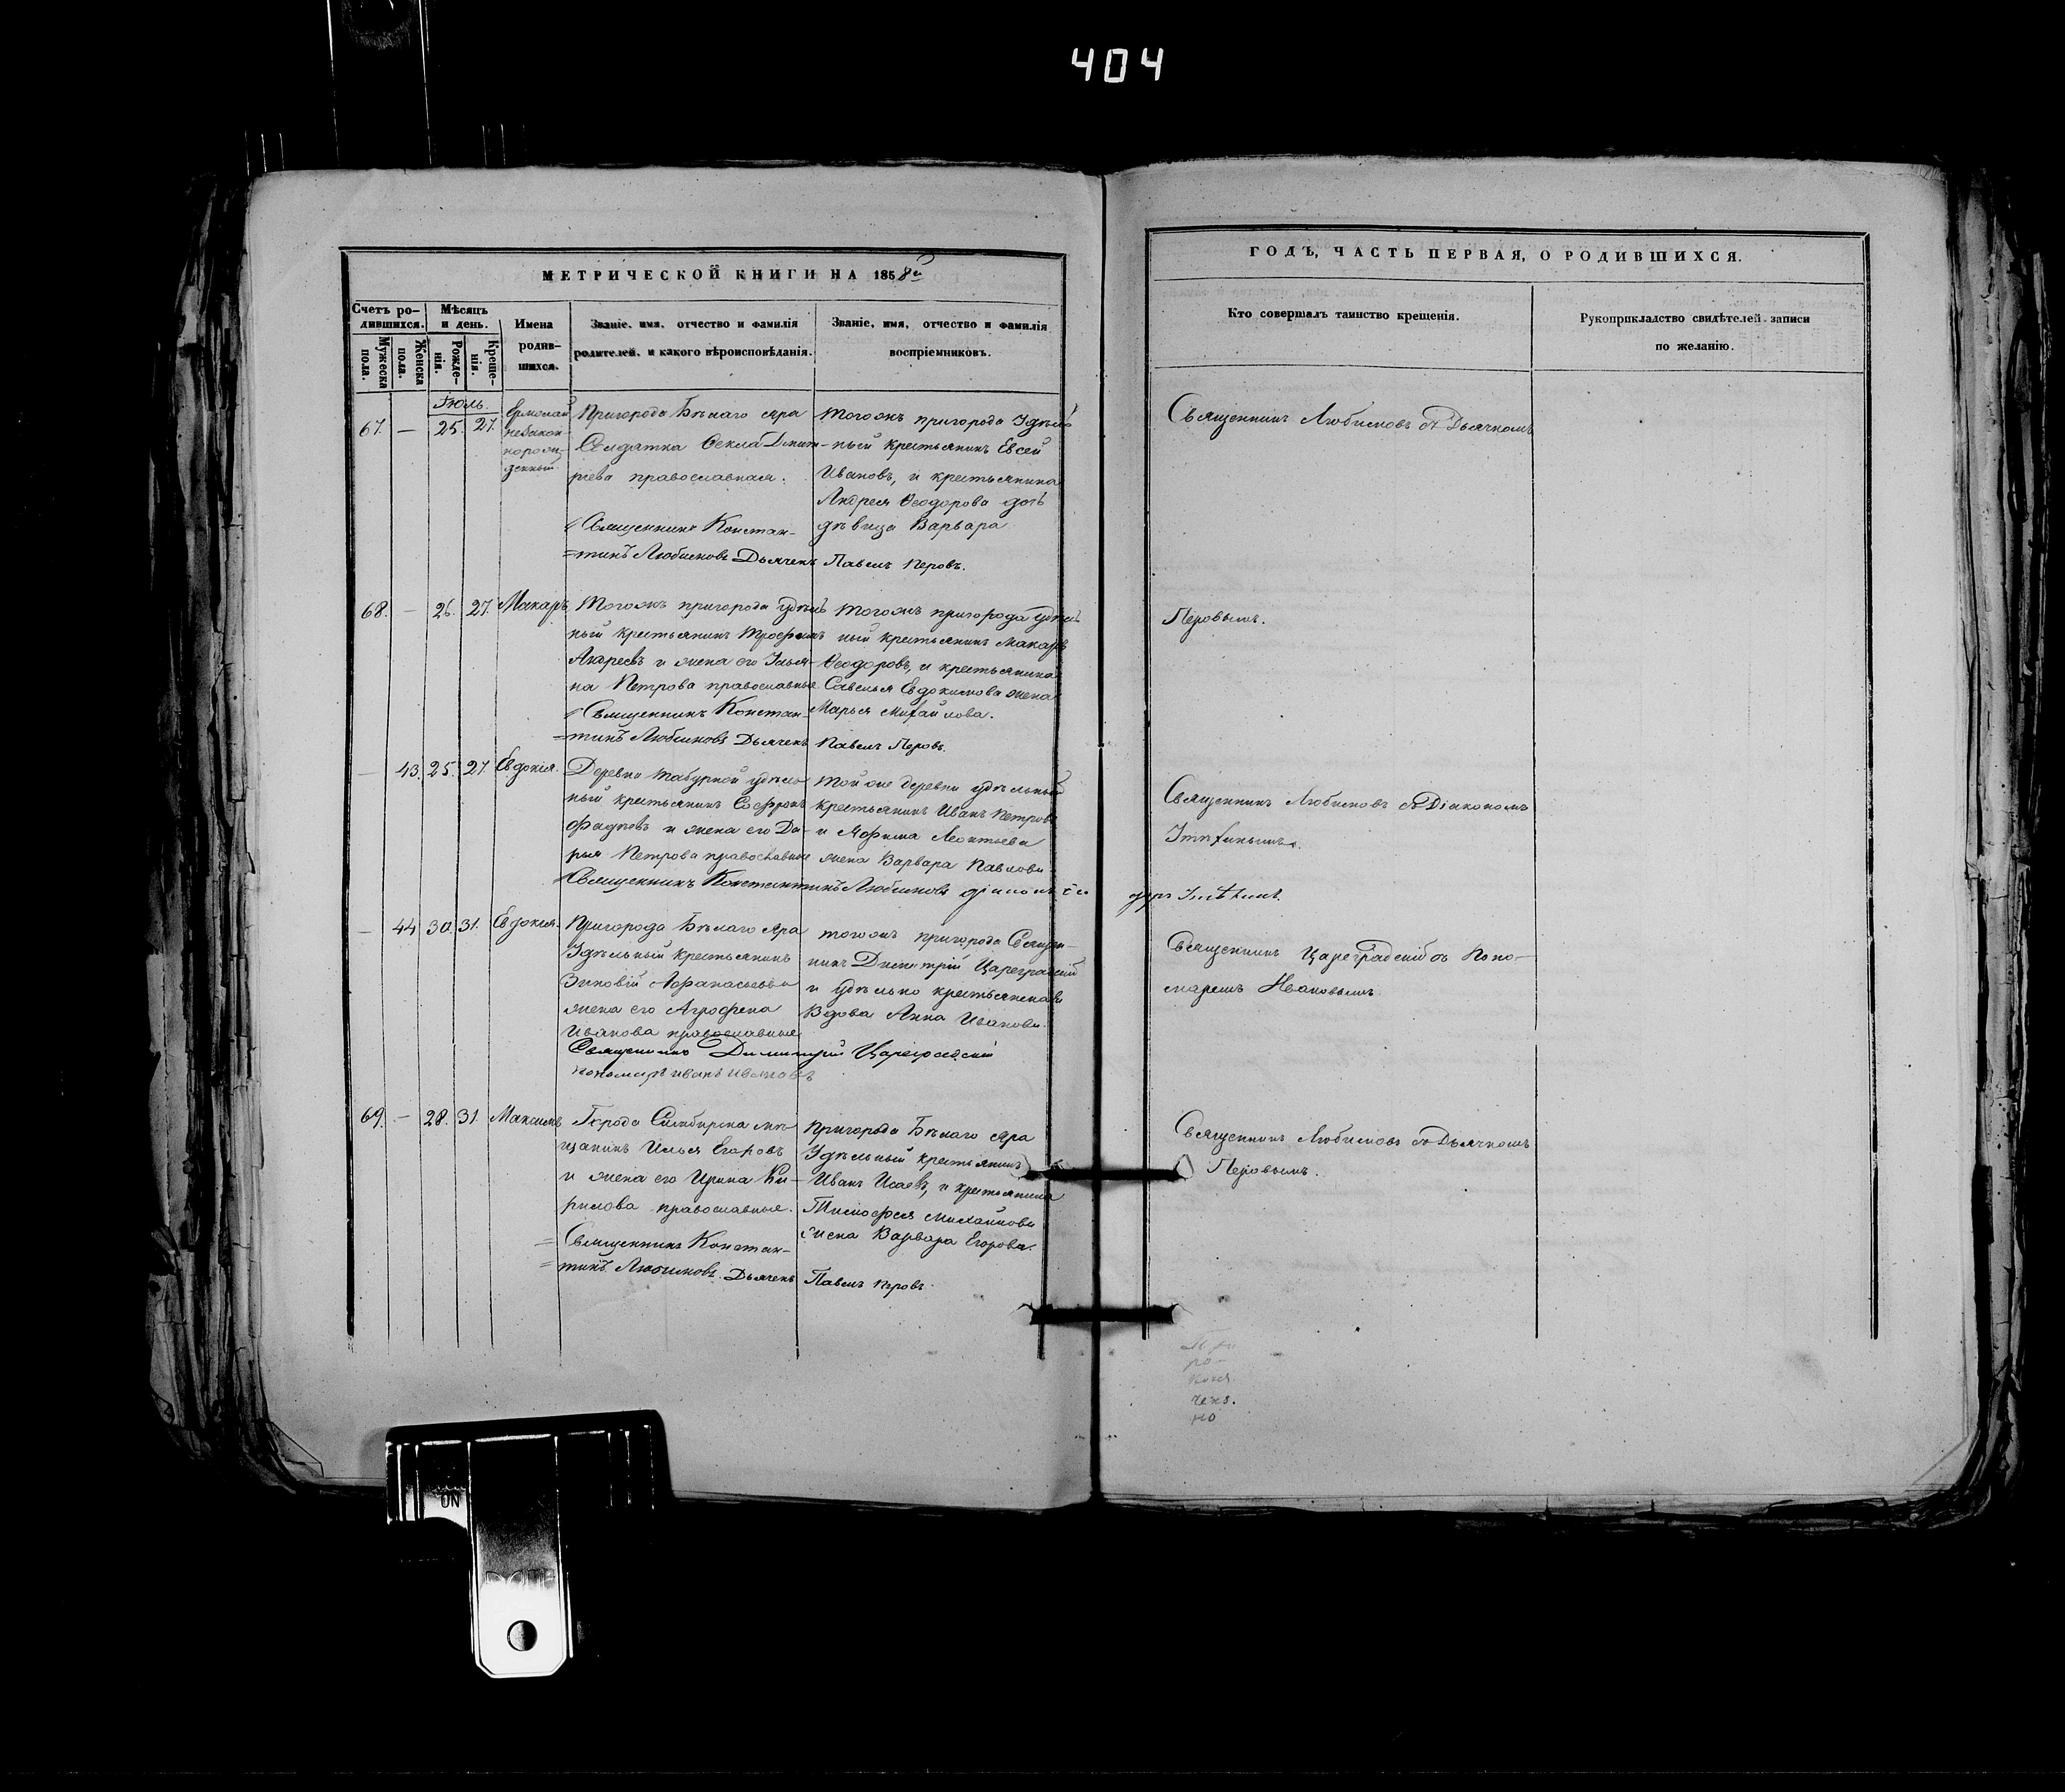 404
МЕТРИЧЕСКОЙ КНИГИ НА 1858й
Счетъ ро-
дившихся.
Мѣсяцъ
и день.
Мужеска
пола.
Женска
пола.
Рожде-
нія.
Креще-
нія.
Имена
родив-
шихся.
Званіе, имя, отчество и фамилія
родителей, и какого вѣроисповѣданія.
Званіе, имя, отчество и фамилія
воспріемниковъ.
ГОДЪ, ЧАСТЬ ПЕРВАЯ, О РОДИВШИХСЯ.
Кто совершалъ таинство крещенія.
Рукоприкладство свидѣтелей записи
по желанію.
Іюль.
67. — 25. 27.
Ермолай
незакон-
норож-
денный
Пригорода Бѣлаго Яра
Солдатка Ѳекла Дмит-
ріева православная.
Священникъ Констан-
=тинъ Любимовъ Дьячекъ Павелъ Перовъ.
Тогожъ пригорода Удѣль
ный крестьянинъ Евсей
Ивановъ, и крестьянина
Андрея Ѳеодорова дочь
дѣвица Варвара
Священникъ Любимовъ съ Дьячкомъ
Перовымъ.
68. — 26. 27. Макаръ
Тогожъ пригорода удѣль
ный крестьянинъ Трофимъ
Андреевъ и жена его Улья-
на Петрова православные
Священникъ Констан-
=тинъ Любимовъ Дьячекъ Павелъ Перовъ.
Тогожъ пригорода удѣль
ный крестьянинъ Макаръ
Ѳеодоровъ, и крестьянина
Савелья Евдокимова жена
Марья Михайлова.
— 43. 25. 27. Евдокія.
Деревни Табурной удѣль
ный крестьянинъ Софронъ
Фадѣевъ и жена его Да-
рья Петрова православные
Священникъ Константинъ Любимовъ
Той же деревни удѣльный
крестьянинъ Иванъ Петровъ
и Яфима Леонтьева
жена Варвара Павлова
Священникъ Любимовъ съ Діакономъ
— 44 30. 31. Евдокія.
Пригорода Бѣлаго Яра
Удѣльный крестьянинъ
Зиновій Афанасьевъ и
жена его Агрофена
Иванова православные
Священникъ Димитрій Цареградскій
пономарь Иванъ Ивановъ
тогожъ пригорода Священ-
никъ Димитрій Цареградскій
и удѣльно крестьянская
Вдова Анна Иванова.
Священникъ Цареградскій съ Поно-
маремъ Ивановымъ.
69. — 28. 31. Максимъ
Города Симбирска мѣ-
щанинъ Илья Егоровъ
и жена его Ирина Ки-
рилова православные.
= Священникъ Констан-
=тинъ Любимовъ. Дьячекъ Павелъ Перовъ.
Пригорода Бѣлаго Яра
Удѣльный крестьянинъ
Иванъ Исаевъ, и крестьянина
Тимофея Михайлова
жена Варвара Егорова.
Священникъ Любимовъ съ Дьячкомъ
Перовымъ.
ON